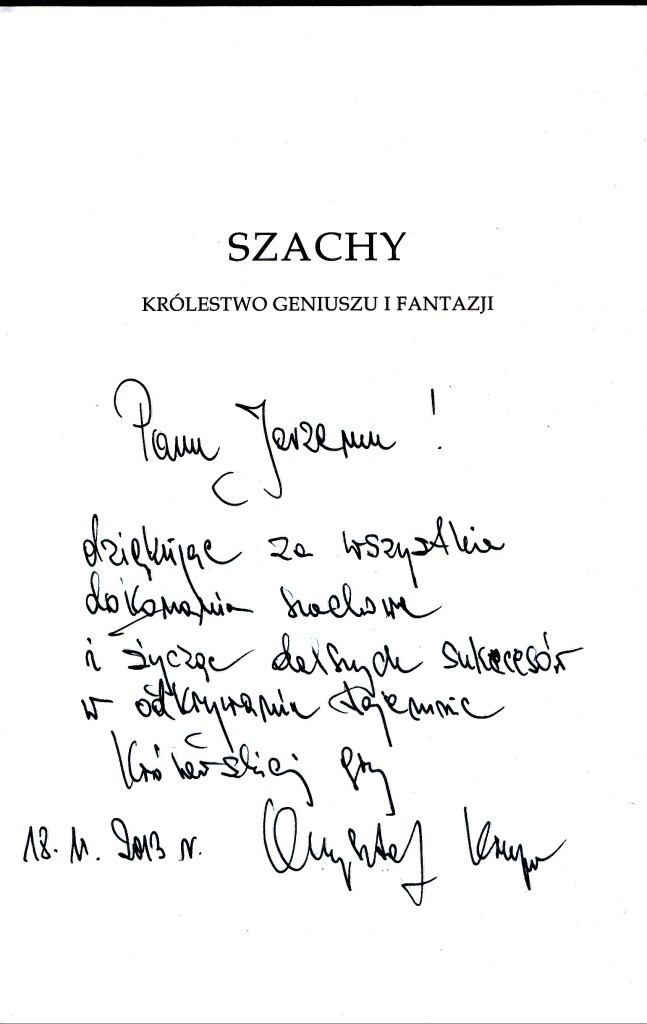 SZACHY
KRÓLESTWO GENIUSZU I FANTAZJI
Panu Jerzemu !
dziękując za wszystkie
dokonania szachowe
i życząc dalszych sukcesów
w odkrywaniu tajemnic
Królewskiej gry
18. 11. 2013 r. Krzysztof